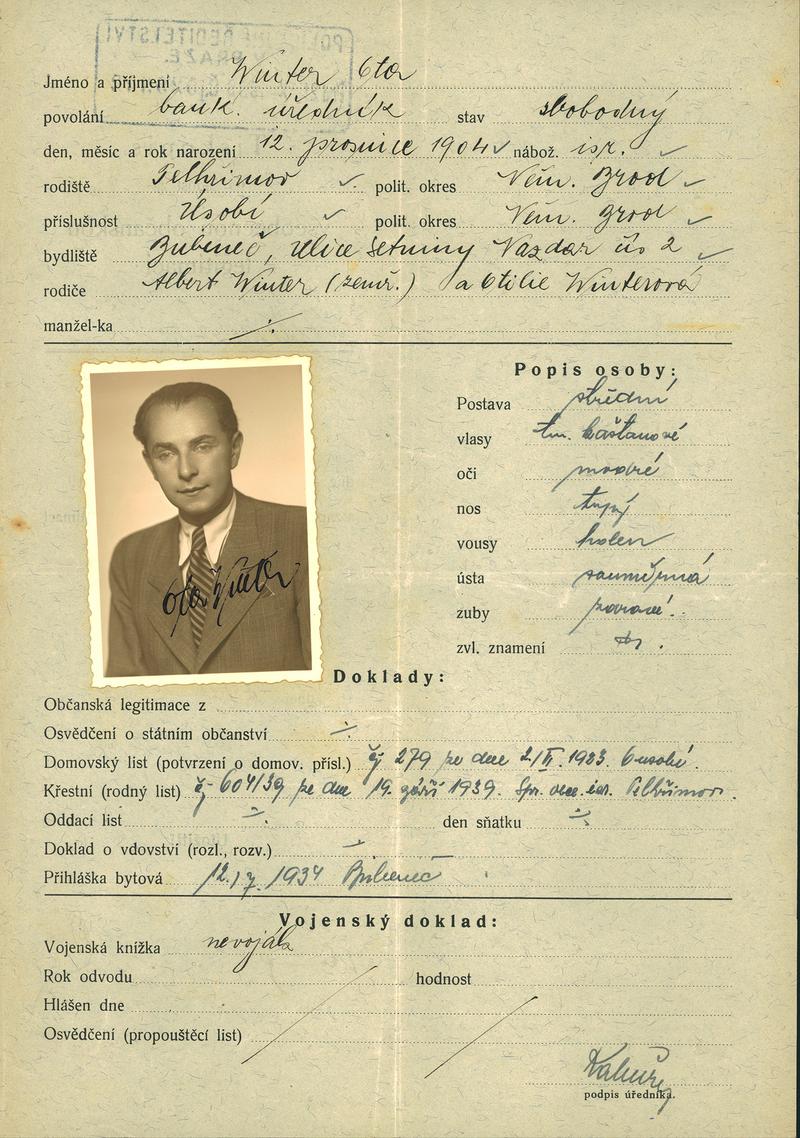 POLICEJNÍ ŘEDITELSTVÍ
V PRAZE.
Jméno a příjmení Winter Ota
povolání bank. úředník stav svobodný
den, měsíc a rok narození 12. prosince 1904 nábož. isr.
rodiště Pelhřimov polit. okres Něm. Brod
příslušnost Úsobí polit. okres Něm. Brod
bydliště Bubeneč, ulice Setniny Nazdar čís 2
rodiče Albert Winter (zemř.) a Otilie Winterová
manžel-ka ./.
Popis osoby:
Postava střední
vlasy tm. kaštanové
oči modré
nos tupý
vousy holen
ústa souměrná
zuby zdravé.
zvl. znamení
Ota Winter
Doklady:
Občanská legitimace z
Osvědčení o státním občanství ./.
Domovský list (potvrzení o domov. přísl.) čj 279 ze dne 2/II. 1923 Ousobí.
Křestní (rodný list) čj 604/39 ze dne 19. září 1939. Spr. Pelhřimov.
Oddací list ./. den sňatku ./.
Doklad o vdovství (rozl., rozv.)
Přihláška bytová 12./7. 1934 Bubeneč
Vojenský doklad:
Vojenská knížka nevoják
Rok odvodu hodnost
Hlášen dne
Osvědčení (propouštěcí list)
podpis úředníka.